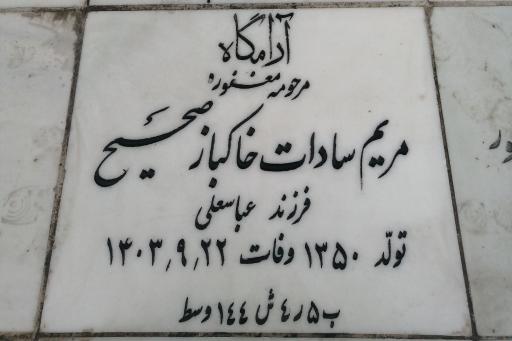 آرامگاه
مرحومه مغفوره
مریم سادات خاکباز صحیح
فرزند عباسعلی
تولد ۱۳۵۰ وفات ۱۴۰۳٫۹٫۲۲
ب ۵ ر ٤ ش ۱٤٤ وسط